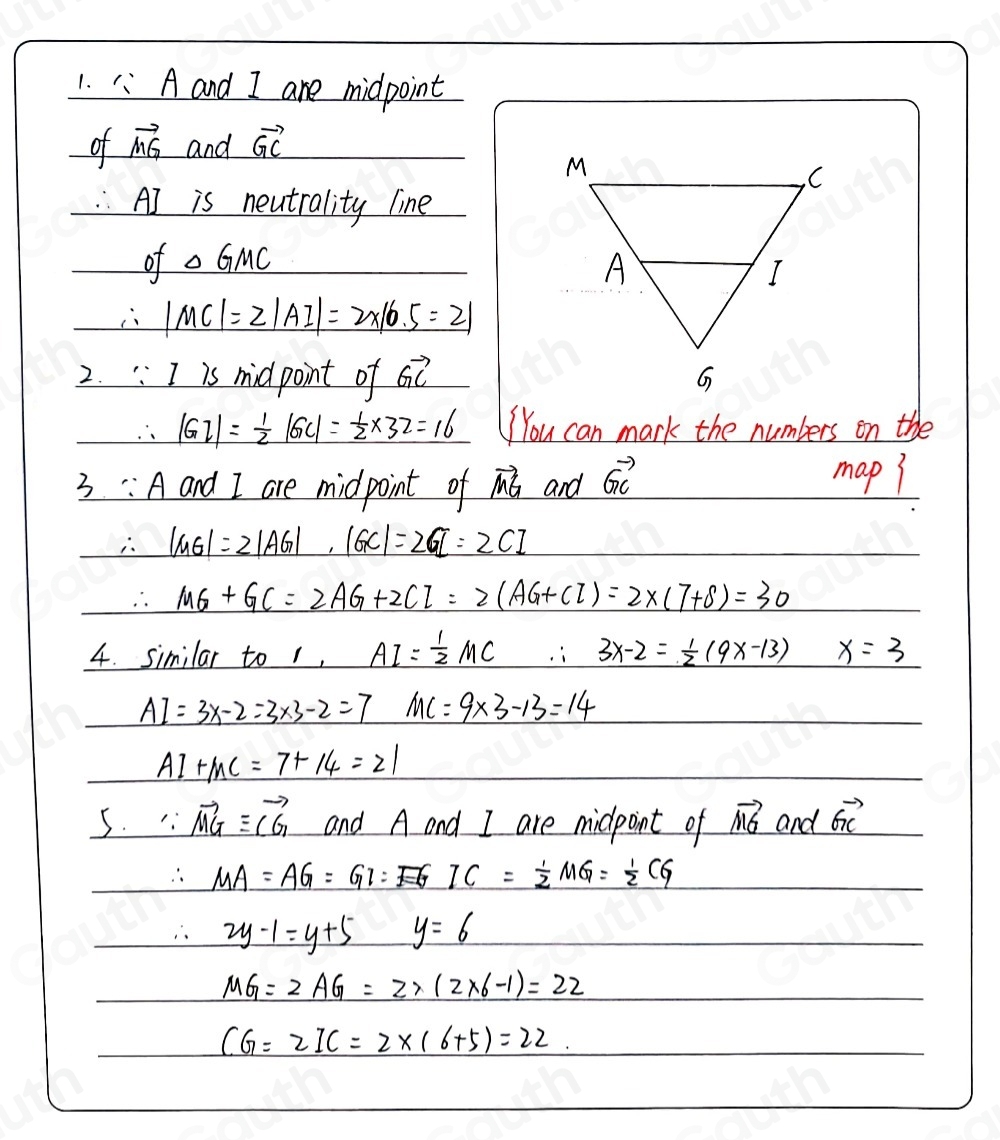 1. ∵ A and I are midpoint
of M⃗G and G⃗C
∴ AI is neutrality line
of △ GMC
∴ |MC| = 2|AI| = 2×10.5 = 21
M
C
A
I
G
2. ∵ I is midpoint of G⃗C
∴ |GI| = 1/2 |GC| = 1/2 × 32 = 16
{You can mark the numbers on the
map }
3. ∵ A and I are midpoint of M⃗G and G⃗C
∴ |MG| = 2|AG| , |GC| = 2GI = 2CI
∴ MG + GC = 2AG + 2CI = 2(AG+CI) = 2×(7+8) = 30
4. Similar to 1, AI = 1/2 MC ∴ 3x-2 = 1/2 (9x-13) x = 3
AI = 3x-2 = 3×3-2 = 7 MC = 9×3-13 = 14
AI + MC = 7+14 = 21
5. ∵ M⃗G ≡ C⃗G and A and I are midpoint of M⃗G and G⃗C
∴ MA = AG = GI = IC = 1/2 MG = 1/2 CG
∴ 2y-1 = y+5 y = 6
MG = 2AG = 2×(2×6-1) = 22
CG = 2IC = 2×(6+5) = 22.
Gauth